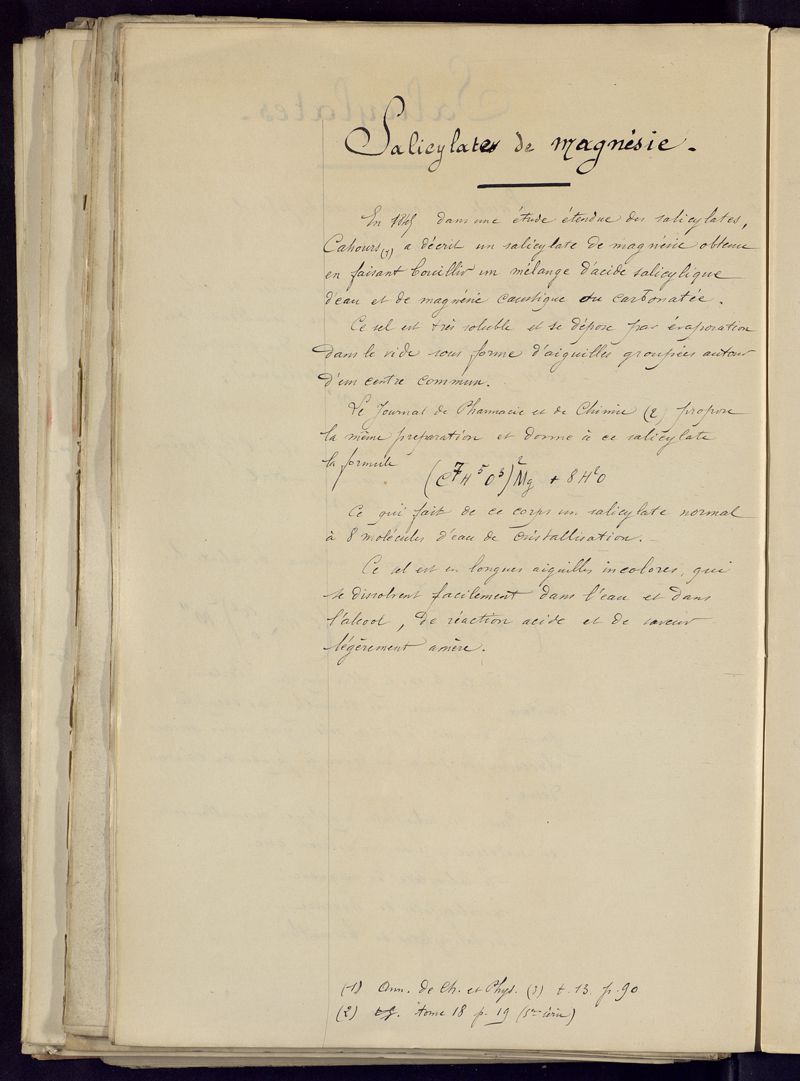 Salicylates de magnésie.
En 1845 dans une étude étendue des salicylates,
Cahours (1) a décrit un salicylate de magnésie obtenu
en faisant bouillir un mélange d'acide salicylique
d'eau et de magnésie caustique ou carbonatée.
Ce sel est très soluble et se dépose par évaporation
dans le vide sous forme d'aiguilles groupées autour
d'un centre commun.
Le Journal de Pharmacie et de Chimie (2) propose
la même préparation et donne à ce salicylate
la formule (C⁷H⁵O³)²Mg + 8H²O
Ce qui fait de ce corps un salicylate normal
à 8 molécules d'eau de cristallisation.
Ce sel est en longues aiguilles incolores, qui
se dissolvent facilement dans l'eau et dans
l'alcool, de réaction acide et de saveur
légèrement amère.
(1) Ann. de Ch. et Phys. (3) t. 13. p. 90
(2) tome 18 p. 19 (5me série)